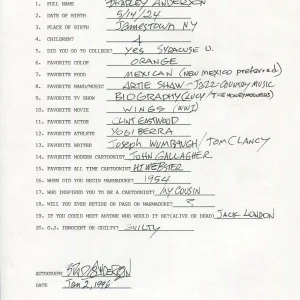 1. FULL NAME BRADLEY ANDERSON
2. DATE OF BIRTH 5/14/24
3. PLACE OF BIRTH JAMESTOWN NY
4. CHILDREN? 4
5. DID YOU GO TO COLLEGE? YES SYRACUSE U.
6. FAVORITE COLOR ORANGE
7. FAVORITE FOOD MEXICAN (NEW MEXICO PREFERRED)
8. FAVORITE BAND/MUSIC ARTIE SHAW - JAZZ-COUNTRY MUSIC
9. FAVORITE TV SHOW BIOGRAPHY (LUCY/THE HONEYMOONERS)
10. FAVORITE MOVIE WINGS (WWI)
11. FAVORITE ACTOR CLINT EASTWOOD
12. FAVORITE ATHLETE YOGI BERRA
13. FAVORITE WRITER JOSEPH WUMBAUGH/TOM CLANCY
14. FAVORITE MODERN CARTOONIST JOHN GALLAGHER
15. FAVORITE ALL TIME CARTOONIST HI WEBSTER
16. WHEN DID YOU BEGIN MARMADUKE? 1954
17. WHO INSPIRED YOU TO BE A CARTOONIST? MY COUSIN
18. WILL YOU EVER RETIRE OR PASS ON MARMADUKE? ?
19. IF YOU COULD MEET ANYONE WHO WOULD IT BE? (ALIVE OR DEAD) JACK LONDON
20. O.J. INNOCENT OR GUILTY? GUILTY
AUTOGRAPH BRAD ANDERSON
DATE JAN 2, 1996